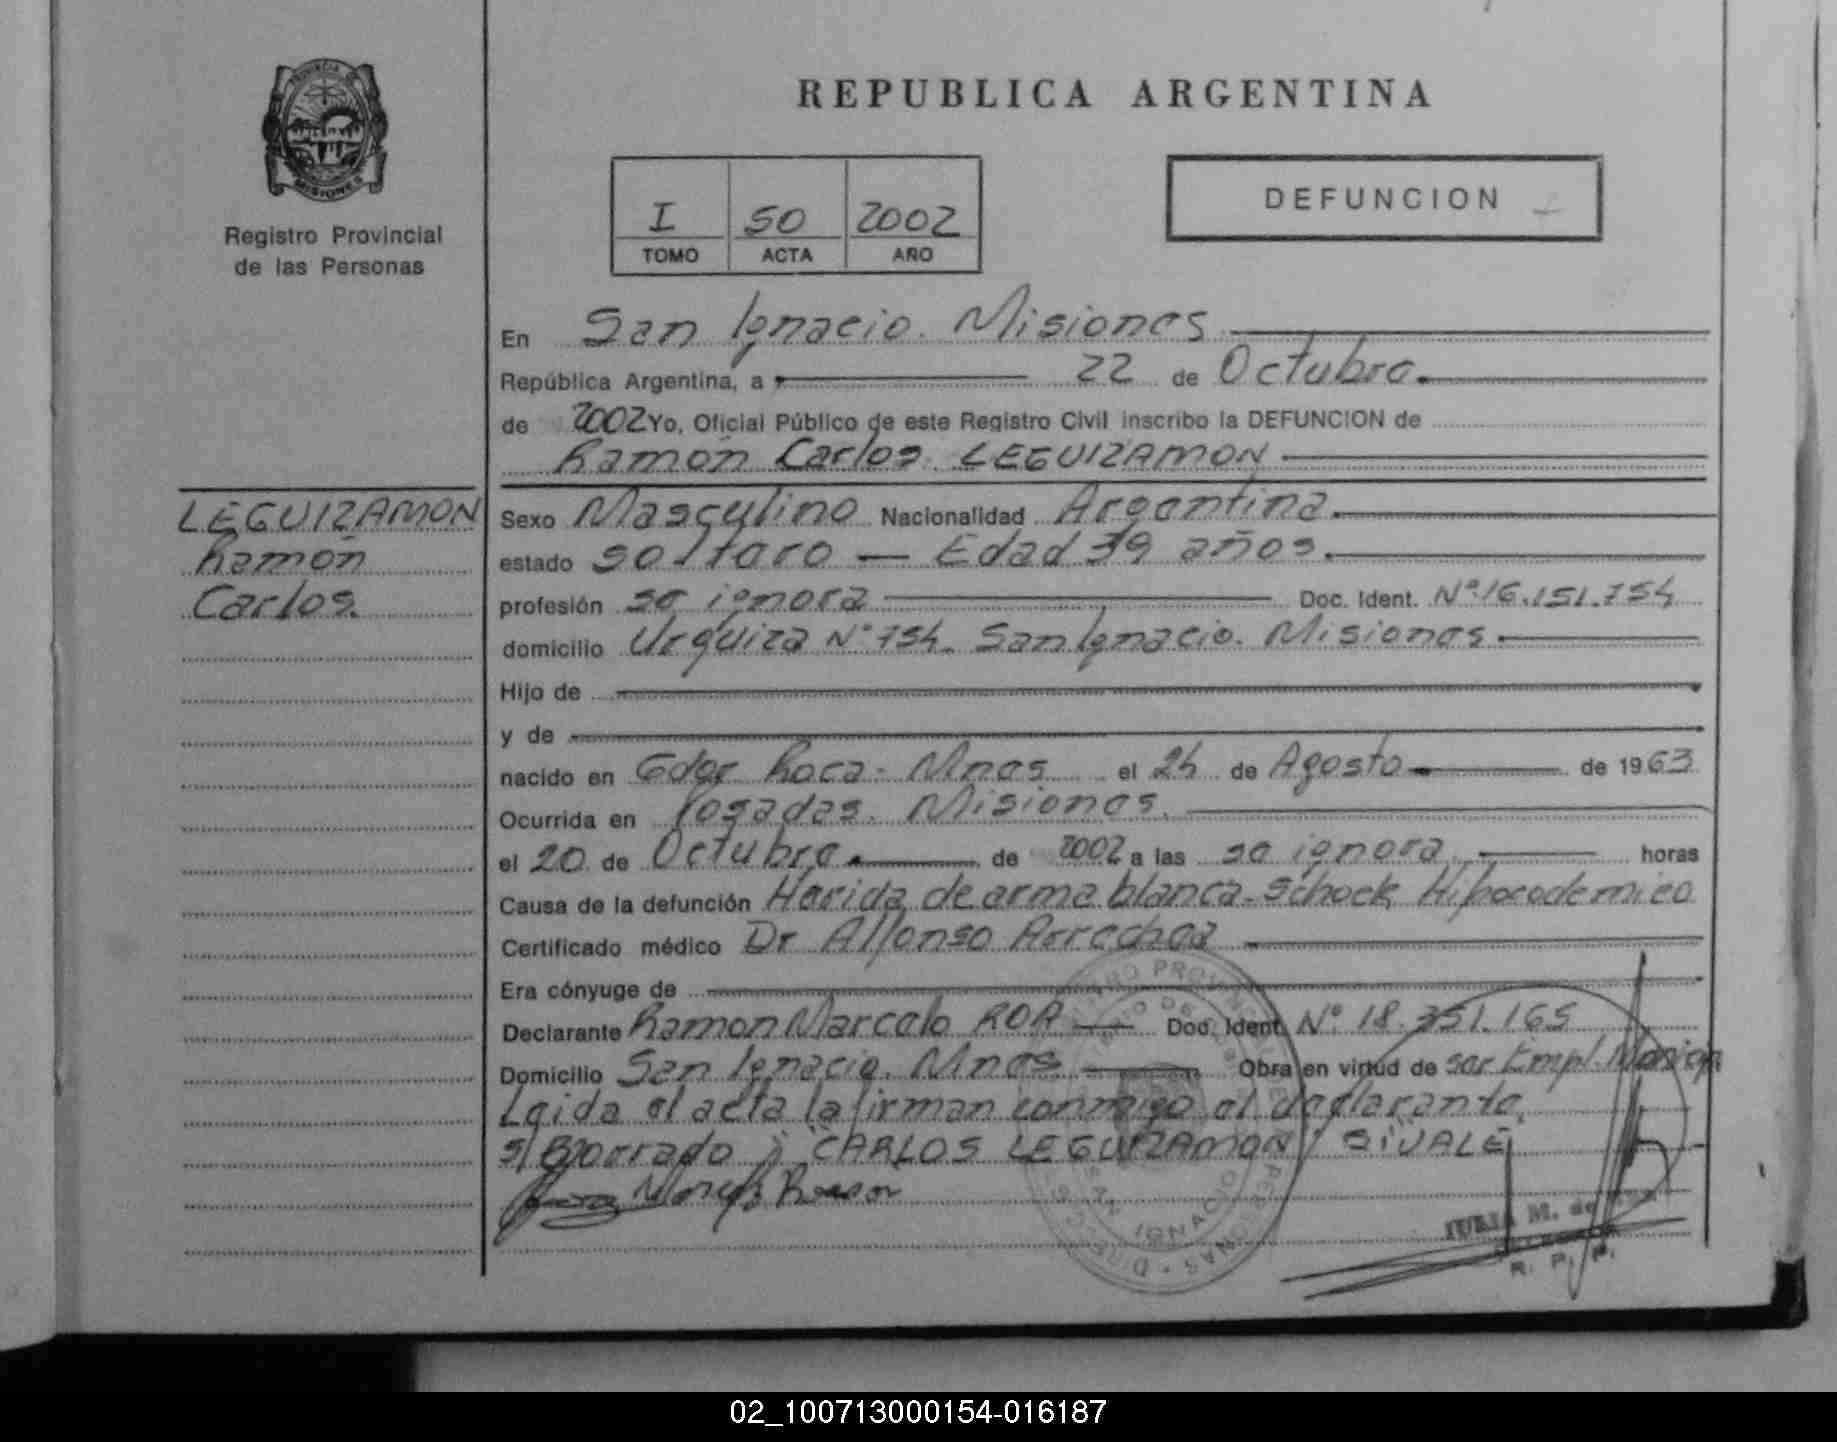 PROVINCIA DE
MISIONES
Registro Provincial
de las Personas
REPUBLICA ARGENTINA
I 50 2002
TOMO ACTA AÑO
DEFUNCION
En San Ignacio. Misiones
República Argentina, a 22 de Octubre.
de 2002 Yo, Oficial Público de este Registro Civil inscribo la DEFUNCION de
Ramón Carlos LEGUIZAMON
LEGUIZAMON
Ramón
Carlos.
Sexo Masculino Nacionalidad Argentina.
estado soltero — Edad 39 años.
profesión se ignora Doc. Ident. Nº 16.151.754
domicilio Urquiza Nº 754. San Ignacio. Misiones.
Hijo de
y de
nacido en Gdor Roca - Mnes el 24 de Agosto de 1963
Ocurrida en Posadas. Misiones.
el 20 de Octubre. de 2002 a las se ignora horas
Causa de la defunción Herida de arma blanca - schock Hipocodemico
Certificado médico Dr Alfonso Arrechea
Era cónyuge de
Declarante Ramon Marcelo ROA Doc. Ident. Nº 18.351.165
Domicilio San Ignacio. Mnes Obra en virtud de ser Empl.
Leida el acta la firman conmigo el declarante.
s/Borrado; "CARLOS LEGUIZAMON / SIVALE
R. P. P.
02_100713000154-016187